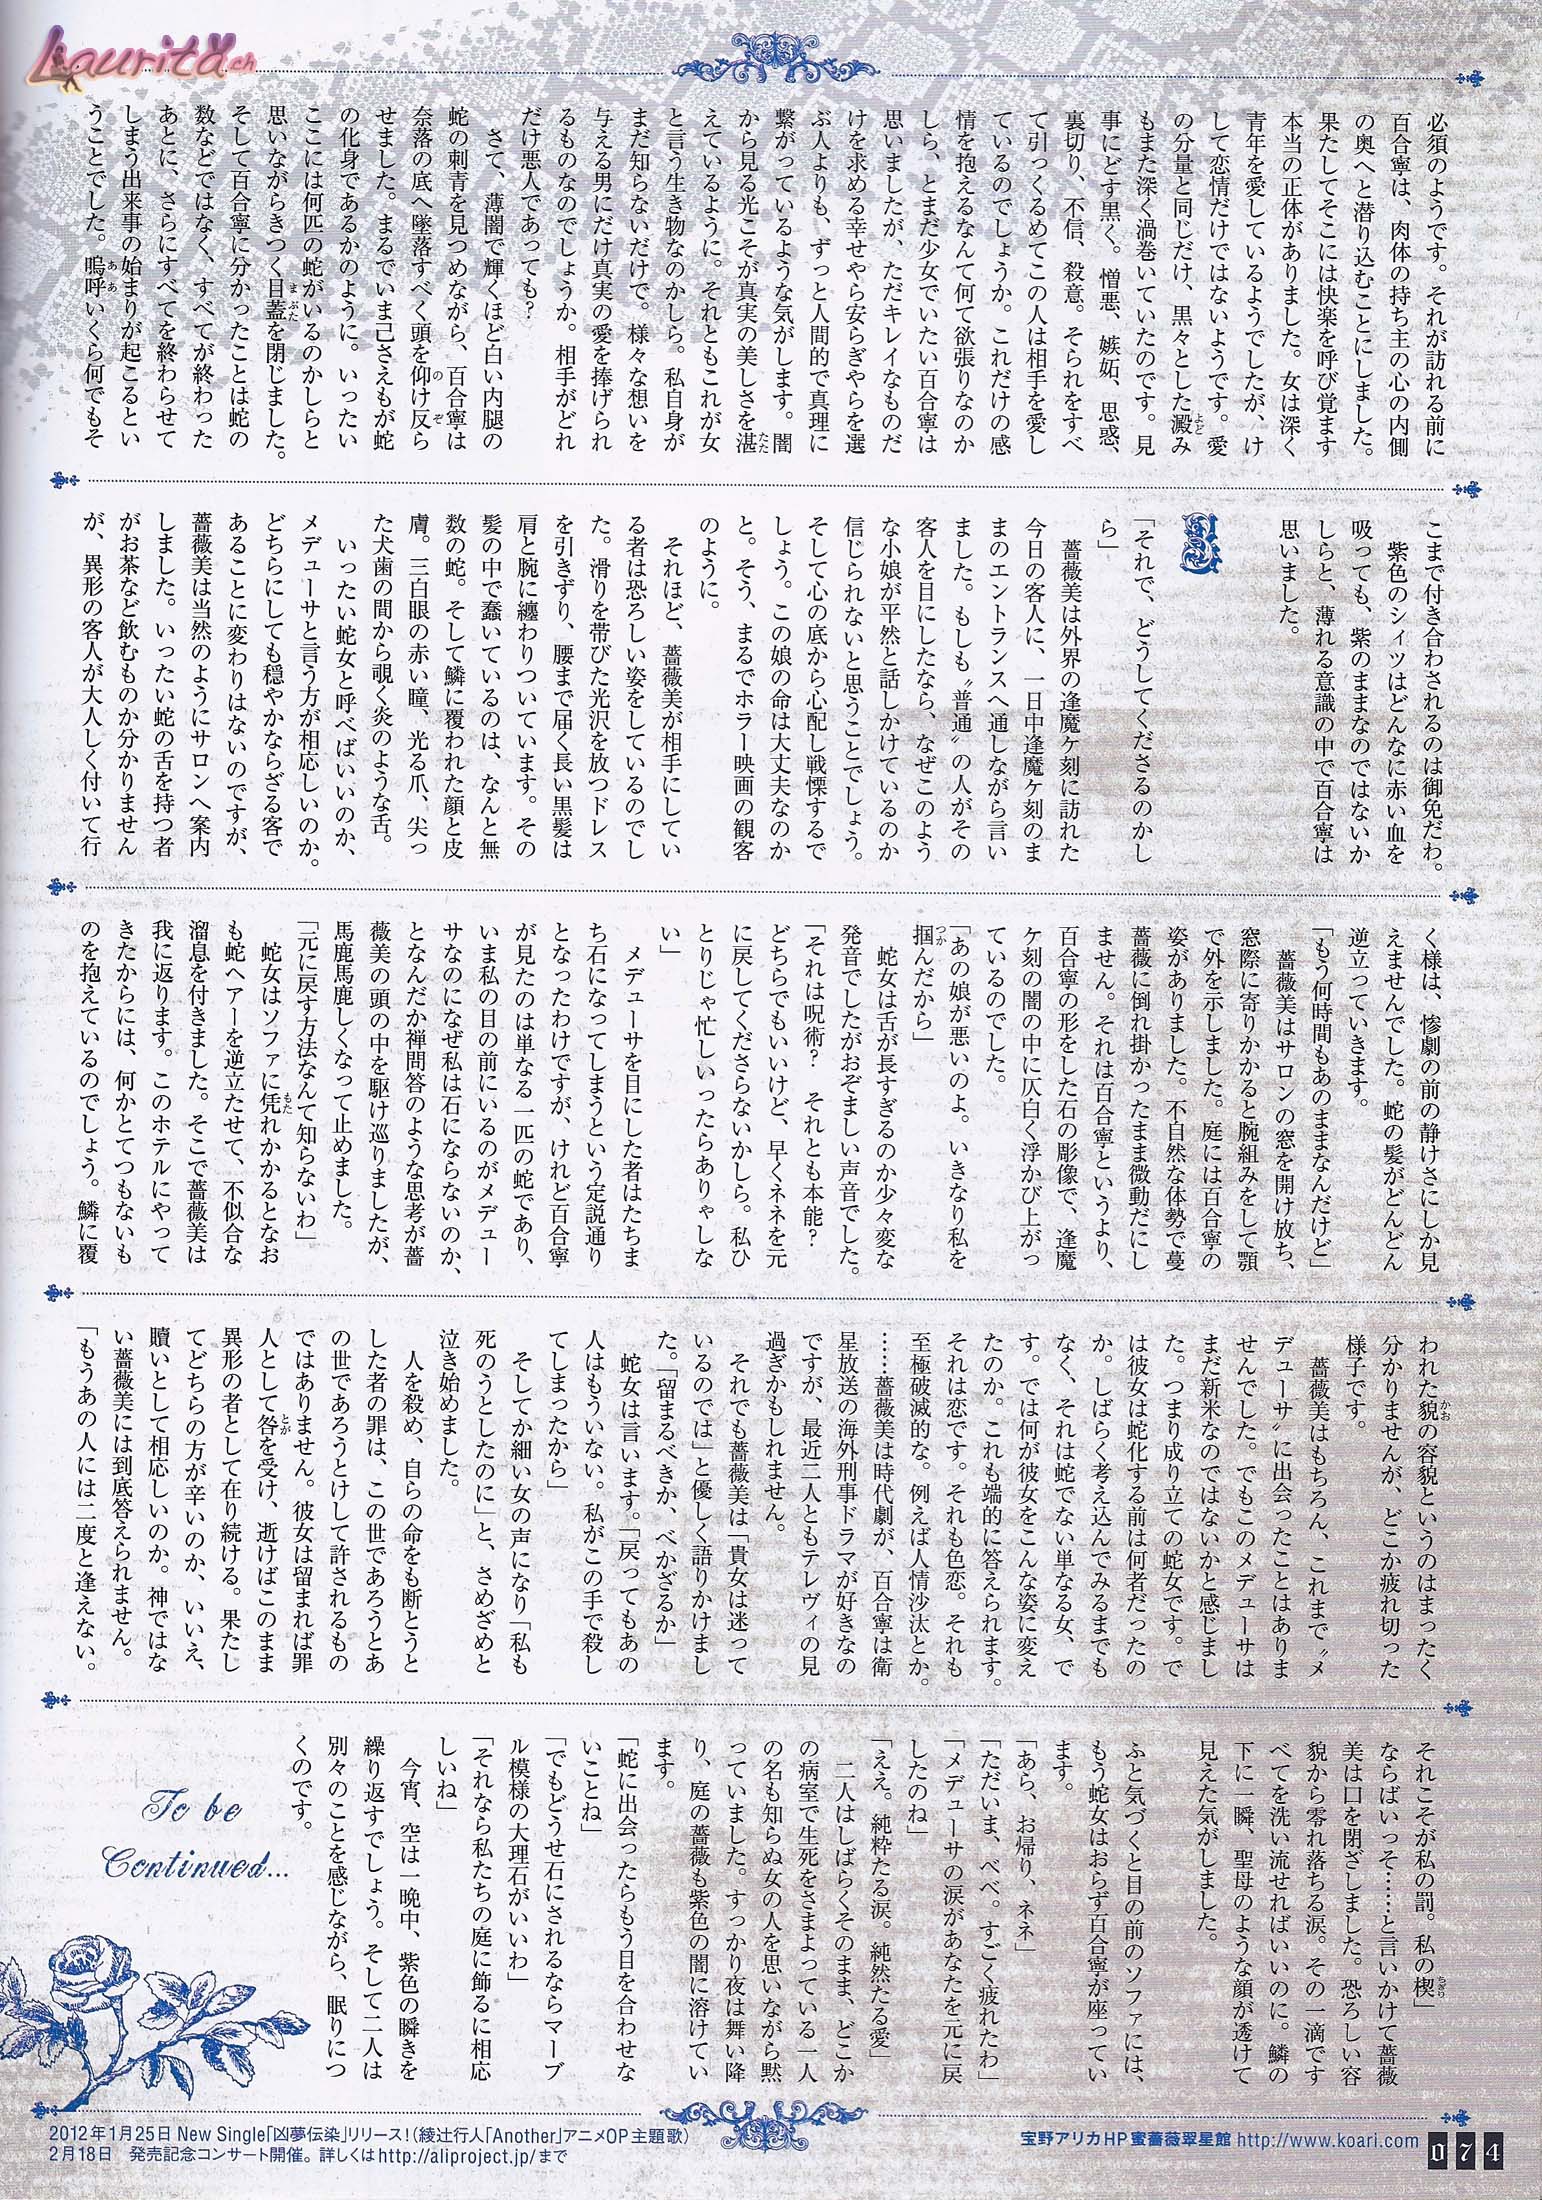 Laurita.ch
必須のようです。それが訪れる前に
百合寧は、肉体の持ち主の心の内側
の奥へと潜り込むことにしました。
果たしてそこには快楽を呼び覚ます
本当の正体がありました。女は深く
青年を愛しているようでしたが、け
して恋情だけではないようです。愛
の分量と同じだけ、黒々とした澱み
もまた深く渦巻いていたのです。見
事にどす黒く。憎悪、嫉妬、思惑、
裏切り、不信、殺意。そられをすべ
て引っくるめてこの人は相手を愛し
ているのでしょうか。これだけの感
情を抱えるなんて何て欲張りなのか
しら、とまだ少女でいたい百合寧は
思いましたが、ただキレイなものだ
けを求める幸せやら安らぎやらを選
ぶ人よりも、ずっと人間的で真理に
繋がっているような気がします。闇
から見る光こそが真実の美しさを湛
えているように。それともこれが女
と言う生き物なのかしら。私自身が
まだ知らないだけで。様々な想いを
与える男にだけ真実の愛を捧げられ
るものなのでしょうか。相手がどれ
だけ悪人であっても?
さて、薄闇で輝くほど白い内腿の
蛇の刺青を見つめながら、百合寧は
奈落の底へ墜落すべく頭を仰け反ら
せました。まるでいま己さえもが蛇
の化身であるかのように。いったい
ここには何匹の蛇がいるのかしらと
思いながらきつく目蓋を閉じました。
そして百合寧に分かったことは蛇の
数などではなく、すべてが終わった
あとに、さらにすべてを終わらせて
しまう出来事の始まりが起こるとい
うことでした。嗚呼いくら何でもそ
こまで付き合わされるのは御免だわ。
紫色のシィツはどんなに赤い血を
吸っても、紫のままなのではないか
しらと、薄れる意識の中で百合寧は
思いました。
3
「それで、どうしてくださるのかし
ら」
薔薇美は外界の逢魔ケ刻に訪れた
今日の客人に、一日中逢魔ケ刻のま
まのエントランスへ通しながら言い
ました。もしも〝普通〟の人がその
客人を目にしたなら、なぜこのよう
な小娘が平然と話しかけているのか
信じられないと思うことでしょう。
そして心の底から心配し戦慄するで
しょう。この娘の命は大丈夫なのか
と。そう、まるでホラー映画の観客
のように。
それほど、薔薇美が相手にしてい
る者は恐ろしい姿をしているのでし
た。滑りを帯びた光沢を放つドレス
を引きずり、腰まで届く長い黒髪は
肩と腕に纏わりついています。その
髪の中で蠢いているのは、なんと無
数の蛇。そして鱗に覆われた顔と皮
膚。三白眼の赤い瞳、光る爪、尖っ
た犬歯の間から覗く炎のような舌。
いったい蛇女と呼べばいいのか、
メデューサと言う方が相応しいのか。
どちらにしても穏やかならざる客で
あることに変わりはないのですが、
薔薇美は当然のようにサロンへ案内
しました。いったい蛇の舌を持つ者
がお茶など飲むものか分かりません
が、異形の客人が大人しく付いて行
く様は、惨劇の前の静けさにしか見
えませんでした。蛇の髪がどんどん
逆立っていきます。
「もう何時間もあのままなんだけど」
薔薇美はサロンの窓を開け放ち、
窓際に寄りかかると腕組みをして顎
で外を示しました。庭には百合寧の
姿がありました。不自然な体勢で蔓
薔薇に倒れ掛かったまま微動だにし
ません。それは百合寧というより、
百合寧の形をした石の彫像で、逢魔
ケ刻の闇の中に仄白く浮かび上がっ
ているのでした。
「あの娘が悪いのよ。いきなり私を
掴んだから」
蛇女は舌が長すぎるのか少々変な
発音でしたがおぞましい声音でした。
「それは呪術?　それとも本能?
どちらでもいいけど、早くネネを元
に戻してくださらないかしら。私ひ
とりじゃ忙しいったらありゃしな
い」
メデューサを目にした者はたちま
ち石になってしまうという定説通り
となったわけですが、けれど百合寧
が見たのは単なる一匹の蛇であり、
いま私の目の前にいるのがメデュー
サなのになぜ私は石にならないのか、
となんだか禅問答のような思考が薔
薇美の頭の中を駆け巡りましたが、
馬鹿馬鹿しくなって止めました。
「元に戻す方法なんて知らないわ」
蛇女はソファに凭れかかるとなお
も蛇ヘアーを逆立たせて、不似合な
溜息を付きました。そこで薔薇美は
我に返ります。このホテルにやって
きたからには、何かとてつもないも
のを抱えているのでしょう。鱗に覆
われた貌の容貌というのはまったく
分かりませんが、どこか疲れ切った
様子です。
薔薇美はもちろん、これまで〝メ
デューサ〟に出会ったことはありま
せんでした。でもこのメデューサは
まだ新米なのではないかと感じまし
た。つまり成り立ての蛇女です。で
は彼女は蛇化する前は何者だったの
か。しばらく考え込んでみるまでも
なく、それは蛇でない単なる女、で
す。では何が彼女をこんな姿に変え
たのか。これも端的に答えられます。
それは恋です。それも色恋。それも
至極破滅的な。例えば人情沙汰とか。
……薔薇美は時代劇が、百合寧は衛
星放送の海外刑事ドラマが好きなの
ですが、最近二人ともテレヴィの見
過ぎかもしれません。
それでも薔薇美は「貴女は迷って
いるのでは」と優しく語りかけまし
た。「留まるべきか、べかざるか」
蛇女は言います。「戻ってもあの
人はもういない。私がこの手で殺し
てしまったから」
そしてか細い女の声になり「私も
死のうとしたのに」と、さめざめと
泣き始めました。
人を殺め、自らの命をも断とうと
した者の罪は、この世であろうとあ
の世であろうとけして許されるもの
ではありません。彼女は留まれば罪
人として咎を受け、逝けばこのまま
異形の者として在り続ける。果たし
てどちらの方が辛いのか、いいえ、
贖いとして相応しいのか。神ではな
い薔薇美には到底答えられません。
「もうあの人には二度と逢えない。
それこそが私の罰。私の楔」
ならばいっそ……と言いかけて薔薇
美は口を閉ざしました。恐ろしい容
貌から零れ落ちる涙。その一滴です
べてを洗い流せればいいのに。鱗の
下に一瞬、聖母のような顔が透けて
見えた気がしました。
ふと気づくと目の前のソファには、
もう蛇女はおらず百合寧が座ってい
ます。
「あら、お帰り、ネネ」
「ただいま、べべ。すごく疲れたわ」
「メデューサの涙があなたを元に戻
したのね」
「ええ。純粋たる涙。純然たる愛」
二人はしばらくそのまま、どこか
の病室で生死をさまよっている一人
の名も知らぬ女の人を思いながら黙
っていました。すっかり夜は舞い降
り、庭の薔薇も紫色の闇に溶けてい
ます。
「蛇に出会ったらもう目を合わせな
いことね」
「でもどうせ石にされるならマーブ
ル模様の大理石がいいわ」
「それなら私たちの庭に飾るに相応
しいね」
今宵、空は一晩中、紫色の瞬きを
繰り返すでしょう。そして二人は
別々のことを感じながら、眠りにつ
くのです。
To be
Continued...
2012年1月25日 New Single「凶夢伝染」リリース!（綾辻行人「Another」アニメOP主題歌）
2月18日　発売記念コンサート開催。詳しくはhttp://aliproject.jp/まで
宝野アリカHP 蜜薔薇翠星館 http://www.koari.com
074